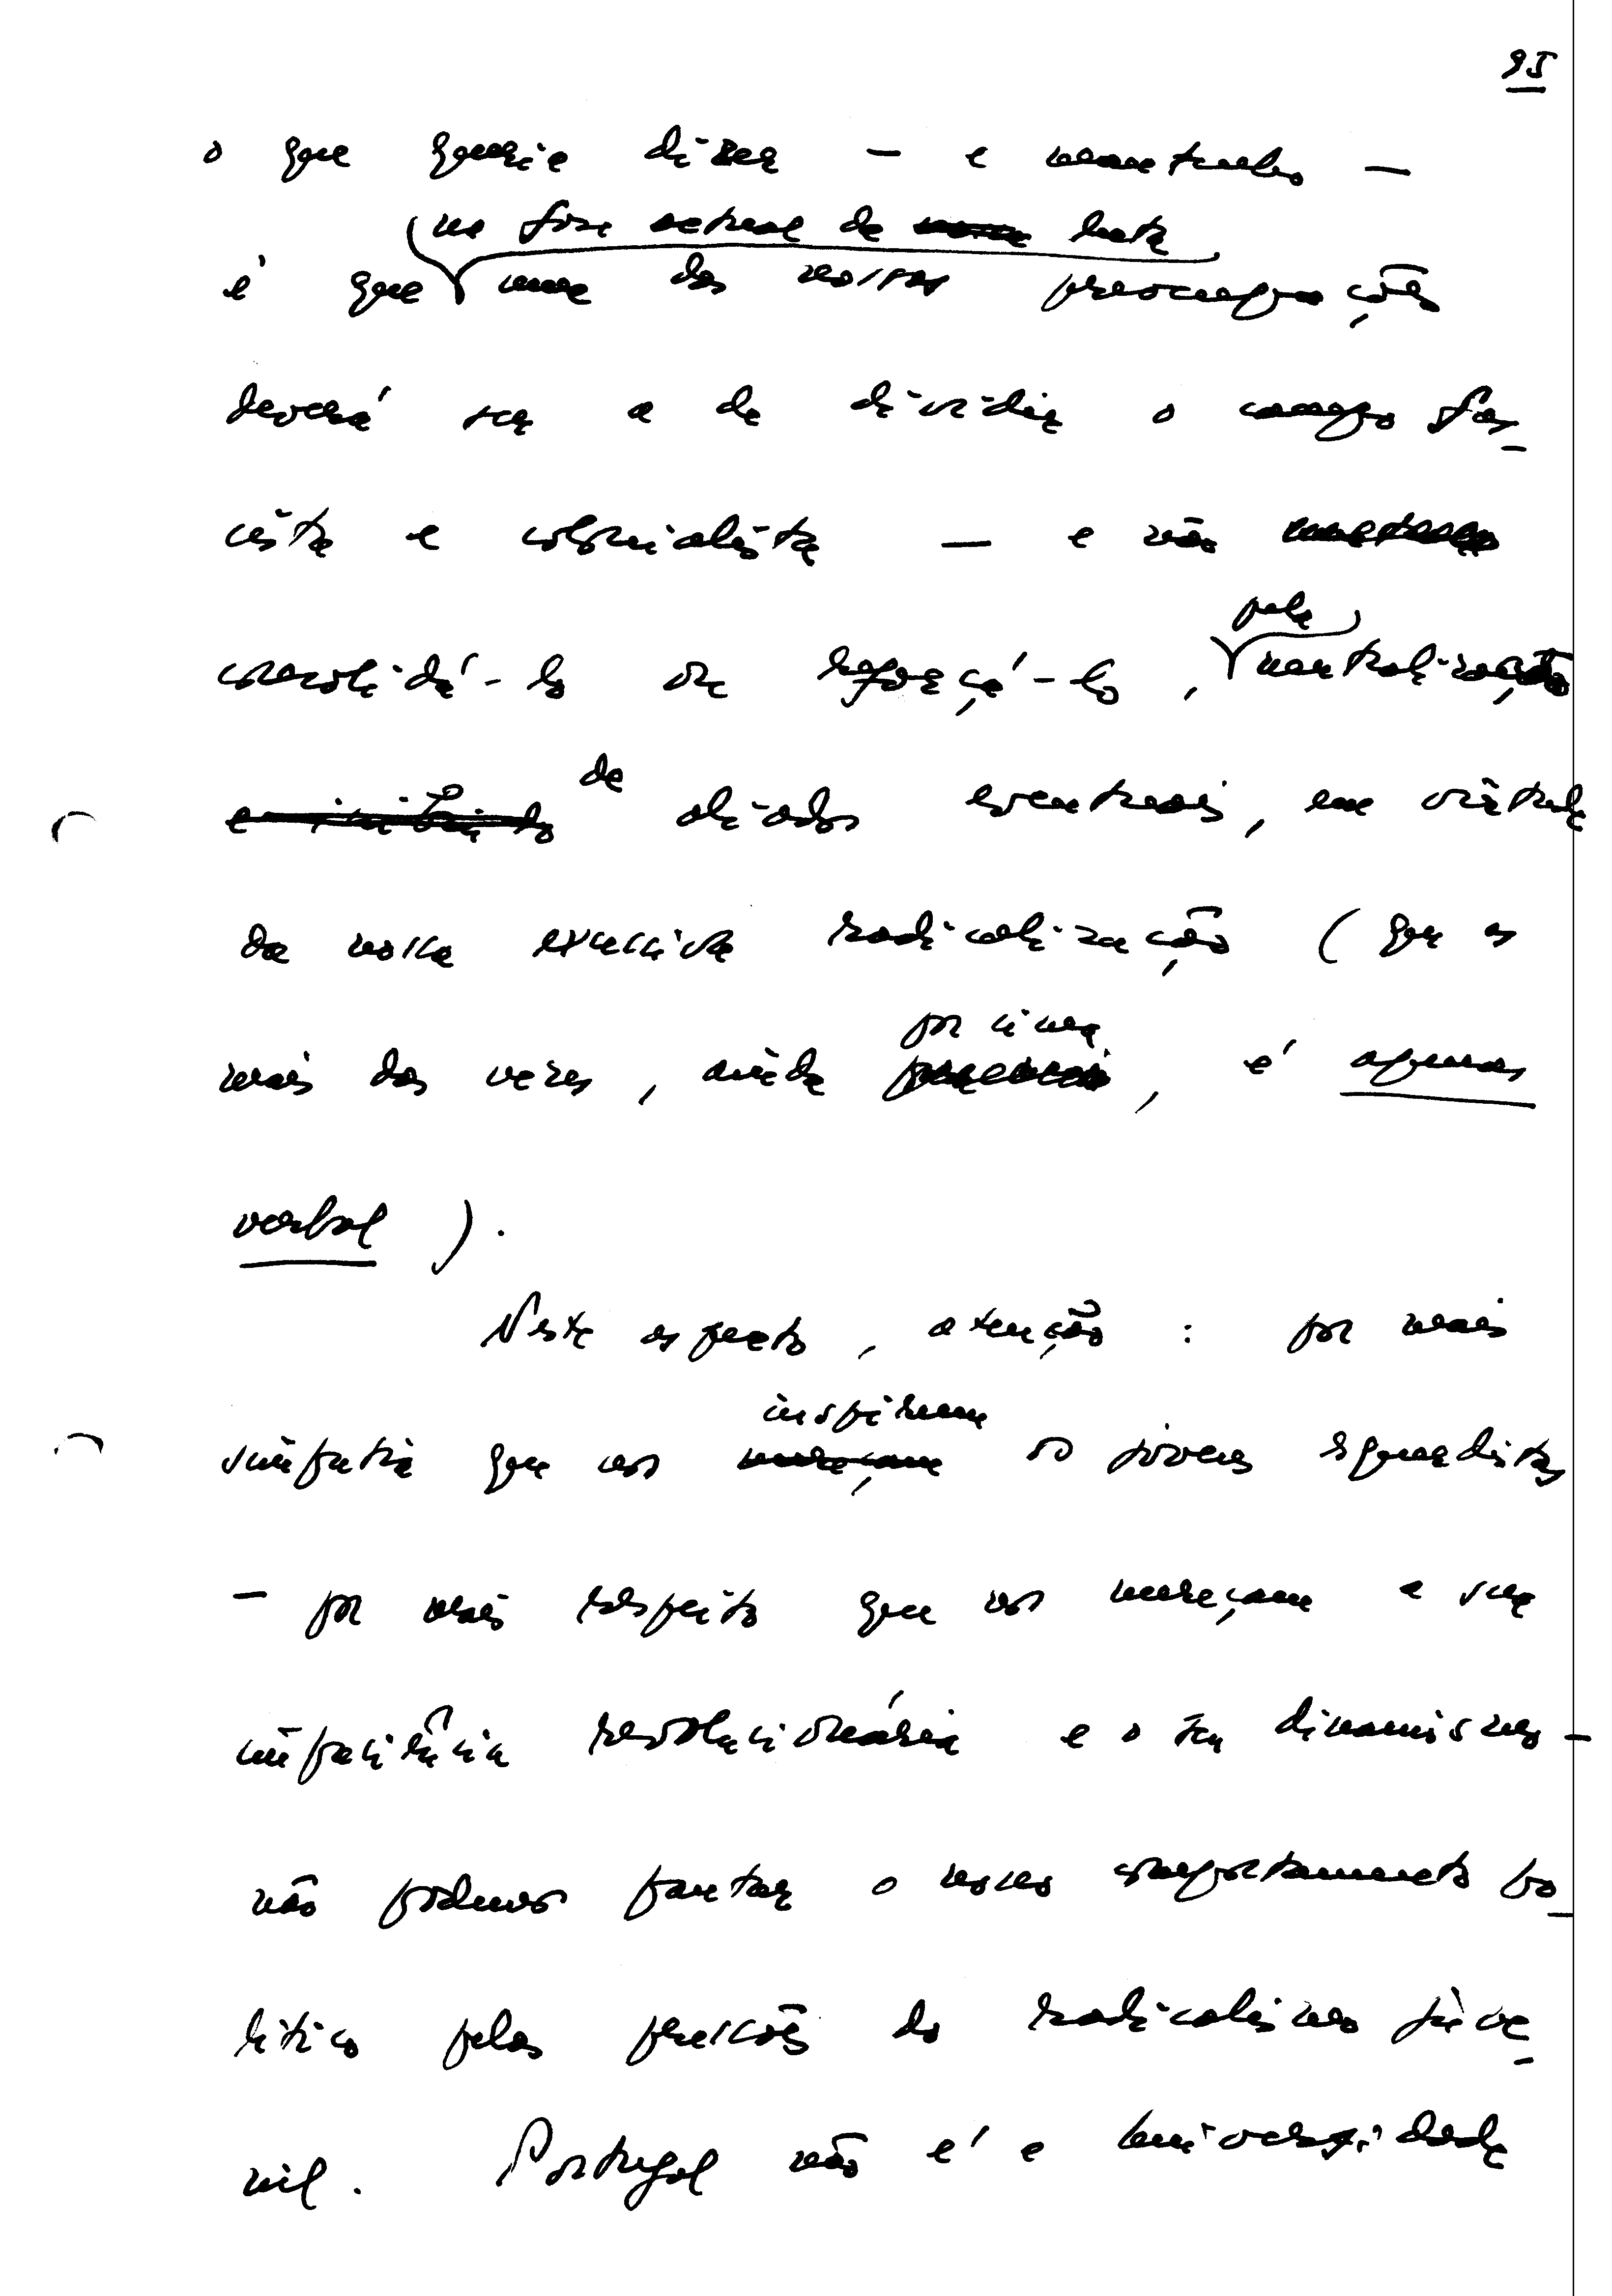 95
o que queria dizer — e mantenho —
na fase actual da luta
é que uma das nossas preocupações
deverá ser a de dividir o campo fas-
cista e colonialista — e não
pela
consolidá-lo ou reforçá-lo, neutralização
de aliados eventuais, em virtude
da nossa excessiva radicalização (que as
mais das vezes, ainda por cima, é apenas
verbal).
Neste aspecto, atenção: por mais
inspirem
simpatia que nos mereçam os jovens esquerdistas
— por mais respeito que nos mereçam a sua
impaciência revolucionária e o seu dinamismo —
não podemos pautar o nosso comportamento po-
lítico pelas pressões do radicalismo juve-
nil. Portugal não é a Universidade